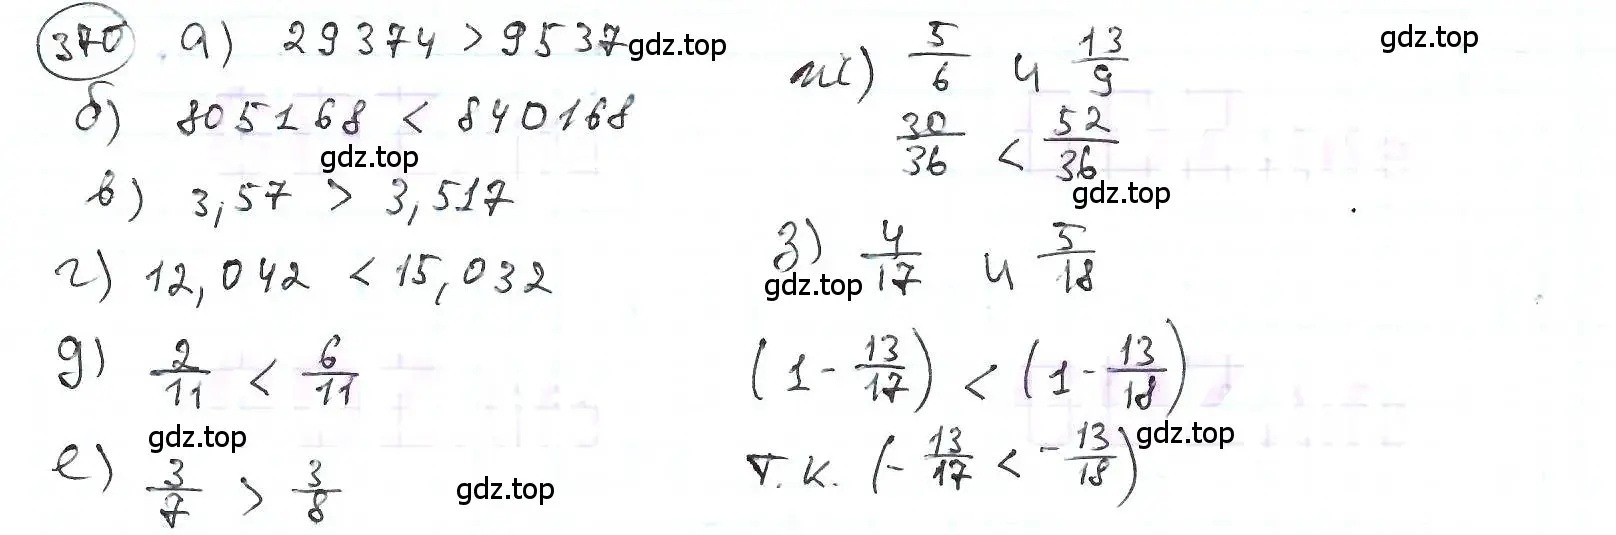 370 а) 29374 > 9537
gdz.top
б) 805168 < 840168
gdz.top
в) 3,57 > 3,517
г) 12,042 < 15,032
д) 2/11 < 6/11
gdz.top
е) 3/7 > 3/8
gdz.top
ж) 5/6 и 13/9
gdz.top
30/36 < 52/36
gdz.top
з) 4/17 и 5/18
gdz.top
(1 - 13/17) < (1 - 13/18)
gdz.top
т.к. (- 13/17 < - 13/18)